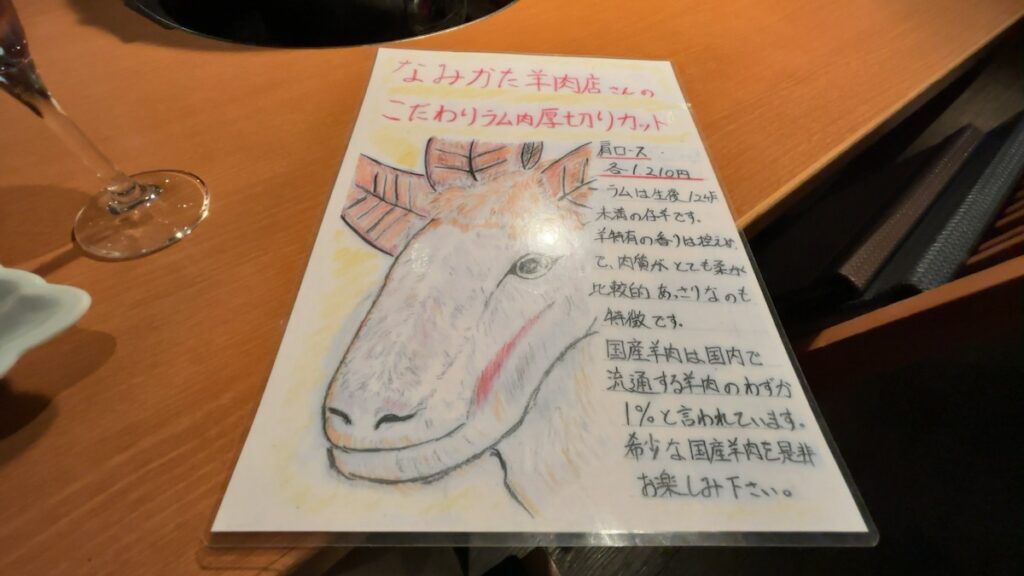 なみかた羊肉店さんの
こだわりラム肉厚切りカット
肩ロース・・
各1,210円
ラムは生後12ヶ月
未満の仔羊です。
羊特有の香りは控えめ
で、肉質がとても柔か
比較的あっさりなのも
特徴です。
国産羊肉は国内で
流通する羊肉のわずか
1%と言われています。
希少な国産羊肉を是非
お楽しみ下さい。